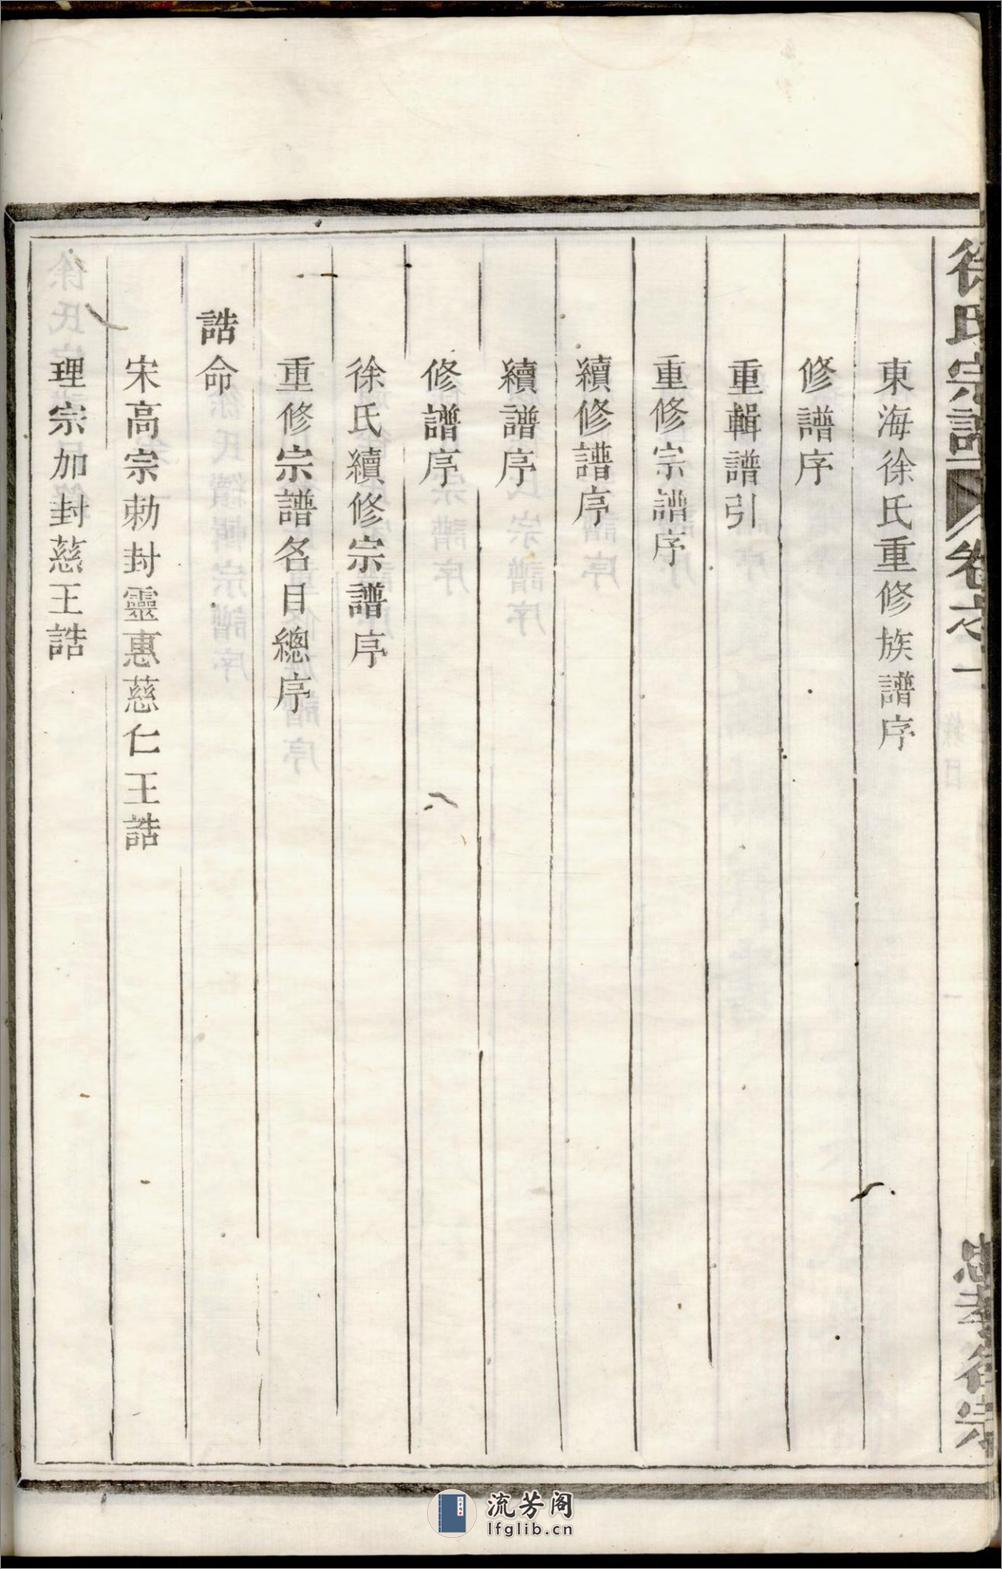 徐氏宗譜
卷之一
忠孝徐宗
東海徐氏重修族譜序
修譜序
重輯譜引
重修宗譜序
續修譜序
續譜序
修譜序
徐氏續修宗譜序
重修宗譜名目總序
誥命
宋高宗勅封靈惠慈仁王誥
理宗加封慈王誥
流芳阁
lfglib.cn